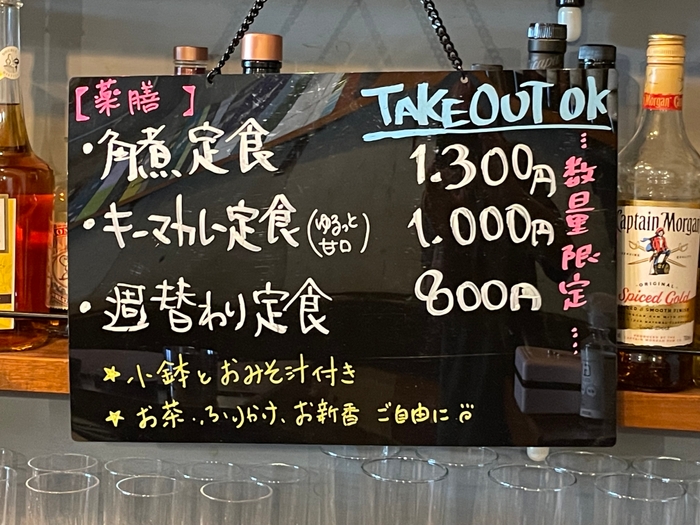 [薬膳]
TAKEOUT OK
・角煮定食 1.300円
・キーマカレー定食(ゆるっと甘口) 1.000円
・週替わり定食 800円
…数量限定…
★小鉢とおみそ汁付き
★お茶・ふりかけ、お新香 ご自由に
Morgan
Captain Morgan
ORIGINAL
Spiced Gold